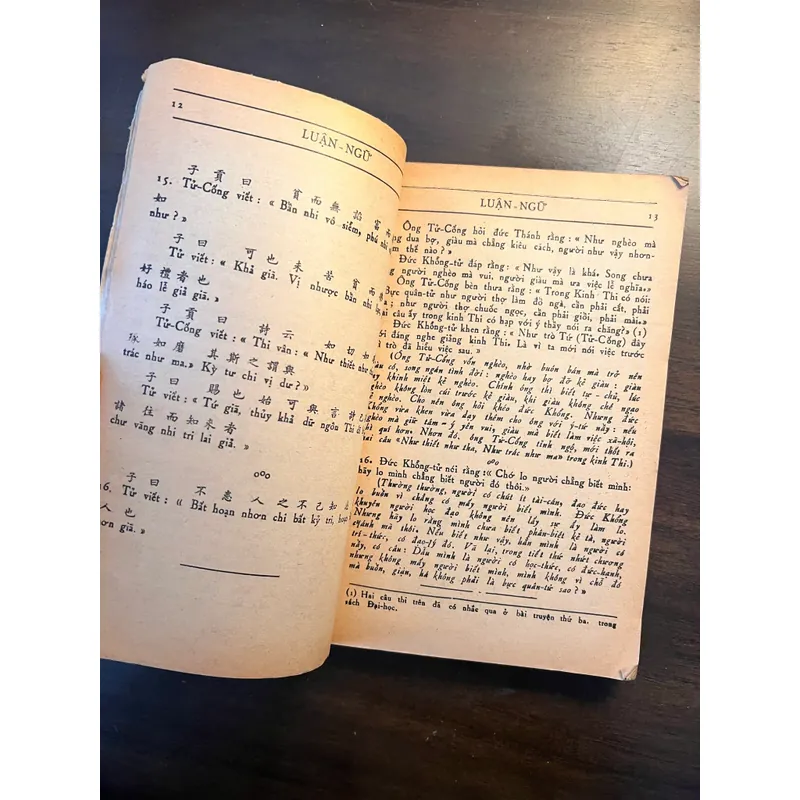 12
LUẬN-NGỮ
子 貢 曰 貧 而 無 諂 富 而
15. Tử-Cống viết : « Bần nhi vô siểm, phú nhi
如
như ? »
子 曰 可 也 未 若 貧 而
Tử viết : « Khả giã. Vị nhược bần nhi
好 禮 者 也
háo lễ giả giã. »
子 貢 曰 詩 云 如 切 如
Tử-Cống viết : « Thi vân : « Như thiết như
琢 如 磨 其 斯 之 謂 與
trác như ma. » Kỳ tư chi vị dư ? »
子 曰 賜 也 始 可 與 言 詩
Tử viết : « Tứ giã, thủy khả dữ ngôn Thi
諸 往 而 知 來 者
chư vãng nhi tri lai giả. »
子 曰 不 患 人 之 不 己 知
16. Tử viết : « Bất hoạn nhơn chi bất kỷ tri,
人 也
giã. »
LUẬN-NGỮ
13
Ông Tử-Cống hỏi đức Thánh rằng : « Như nghèo mà
dua bợ, giàu mà chẳng kiêu cách, người như vậy nhơn-
thế nào ? »
Đức Khổng-tử đáp rằng : « Như vậy là khá. Song chưa
người nghèo mà vui, người giàu mà ưa việc lễ nghĩa. »
Ông Tử-Cống bèn thưa rằng : « Trong Kinh Thi có nói:
quân-tử như người thợ làm đồ ngà, cần phải cắt, phải
như người thợ chuốt ngọc, cần phải giồi, phải mài. »
câu ấy trong kinh Thi có hạp với ý thầy nói ra chăng? » (1)
Đức Khổng-tử khen rằng : « Như trò Tứ (Tử-Cống) đây
đáng nghe giảng kinh Thi. Là vì ta mới nói việc trước
trò đã hiểu việc sau. »
(Ông Tử-Cống vốn nghèo, nhờ buôn bán mà trở nên
có, song ngán tình đời : nghèo hay bợ đỡ kẻ giàu ; giàu
khinh miệt kẻ nghèo. Chính ông thì biết tự-chủ, lúc
nghèo không lòn cúi trước kẻ giàu, khi giàu không chê ngạo
nghèo. Cho nên ông hỏi khéo đức Khổng. Nhưng đức
Khổng vừa khen vừa dạy thêm cho ông với ý-tứ này : nếu
nghèo mà giữ tâm-ý yên vui, giàu mà biết làm việc xã-hội,
quí hơn. Nhơn đó, ông Tử-Cống tỉnh ngộ, mới thốt ra
câu « Như thiết như tha, Như trác như ma » trong kinh Thi.)
16. Đức Khổng-tử nói rằng : « Chớ lo người chẳng biết mình:
hãy lo mình chẳng biết người đó thôi. »
(Thường thường, người có chút ít tài-cán, đạo đức hay
lo buồn vì chẳng có mấy người biết mình. Đức Khổng
khuyên người học đạo không nên lấy sự ấy làm lo.
Nhưng hãy lo rằng mình chưa biết phân-biệt kẻ tà, người
chánh mà thôi. Nếu biết như vậy, bản mình là người có
trí-thức, có đạo-lý đó. Vả lại, trong tiết thứ nhứt chương
này, có câu : Dầu mình là người có học-thức, có đức-hạnh,
nhưng không mấy người biết mình, mình không vì chỗ đó
mà buồn, giận, há không phải là bực quân-tử sao ? »
(1) Hai câu thi trên đã có nhắc qua ở bài truyện thứ ba, trong
sách Đại-học.